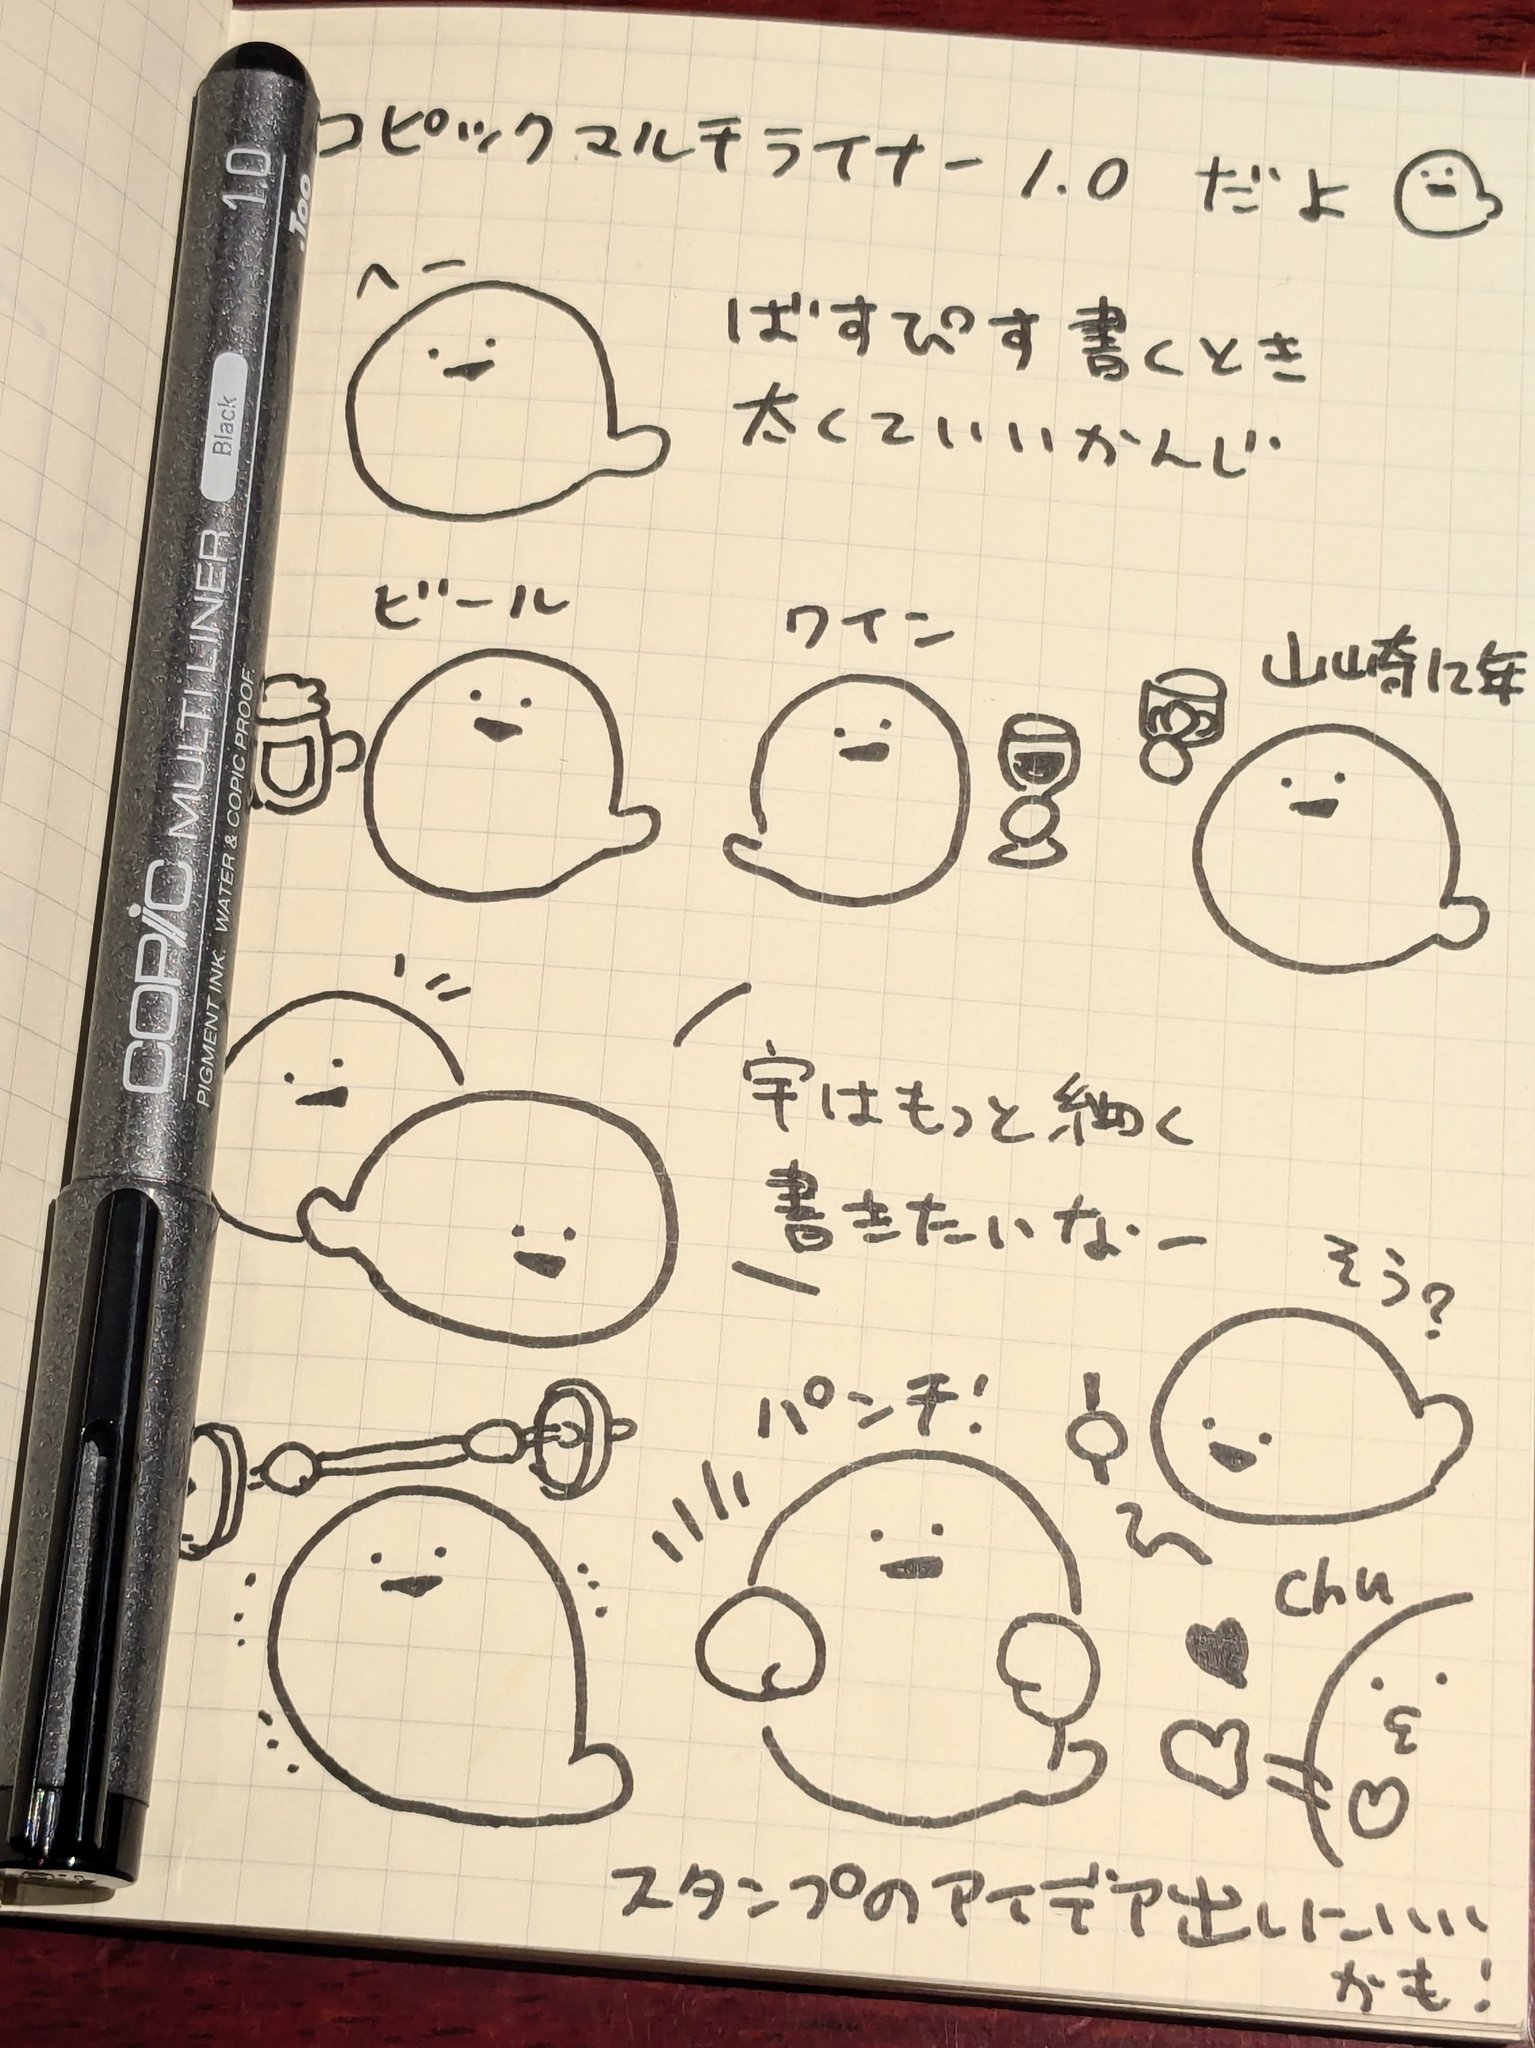 コピックマルチライナー 1.0 だよ
へー
ばすぴす書くとき
太くていいかんじ
ビール
ワイン
山崎12年
字はもっと細く
書きたいなー
そう?
パンチ!
chu
スタンプのアイデア出しにいい
かも!
1.0
.Too
Black
COPIC MULTI LINER
PIGMENT INK. WATER & COPIC PROOF